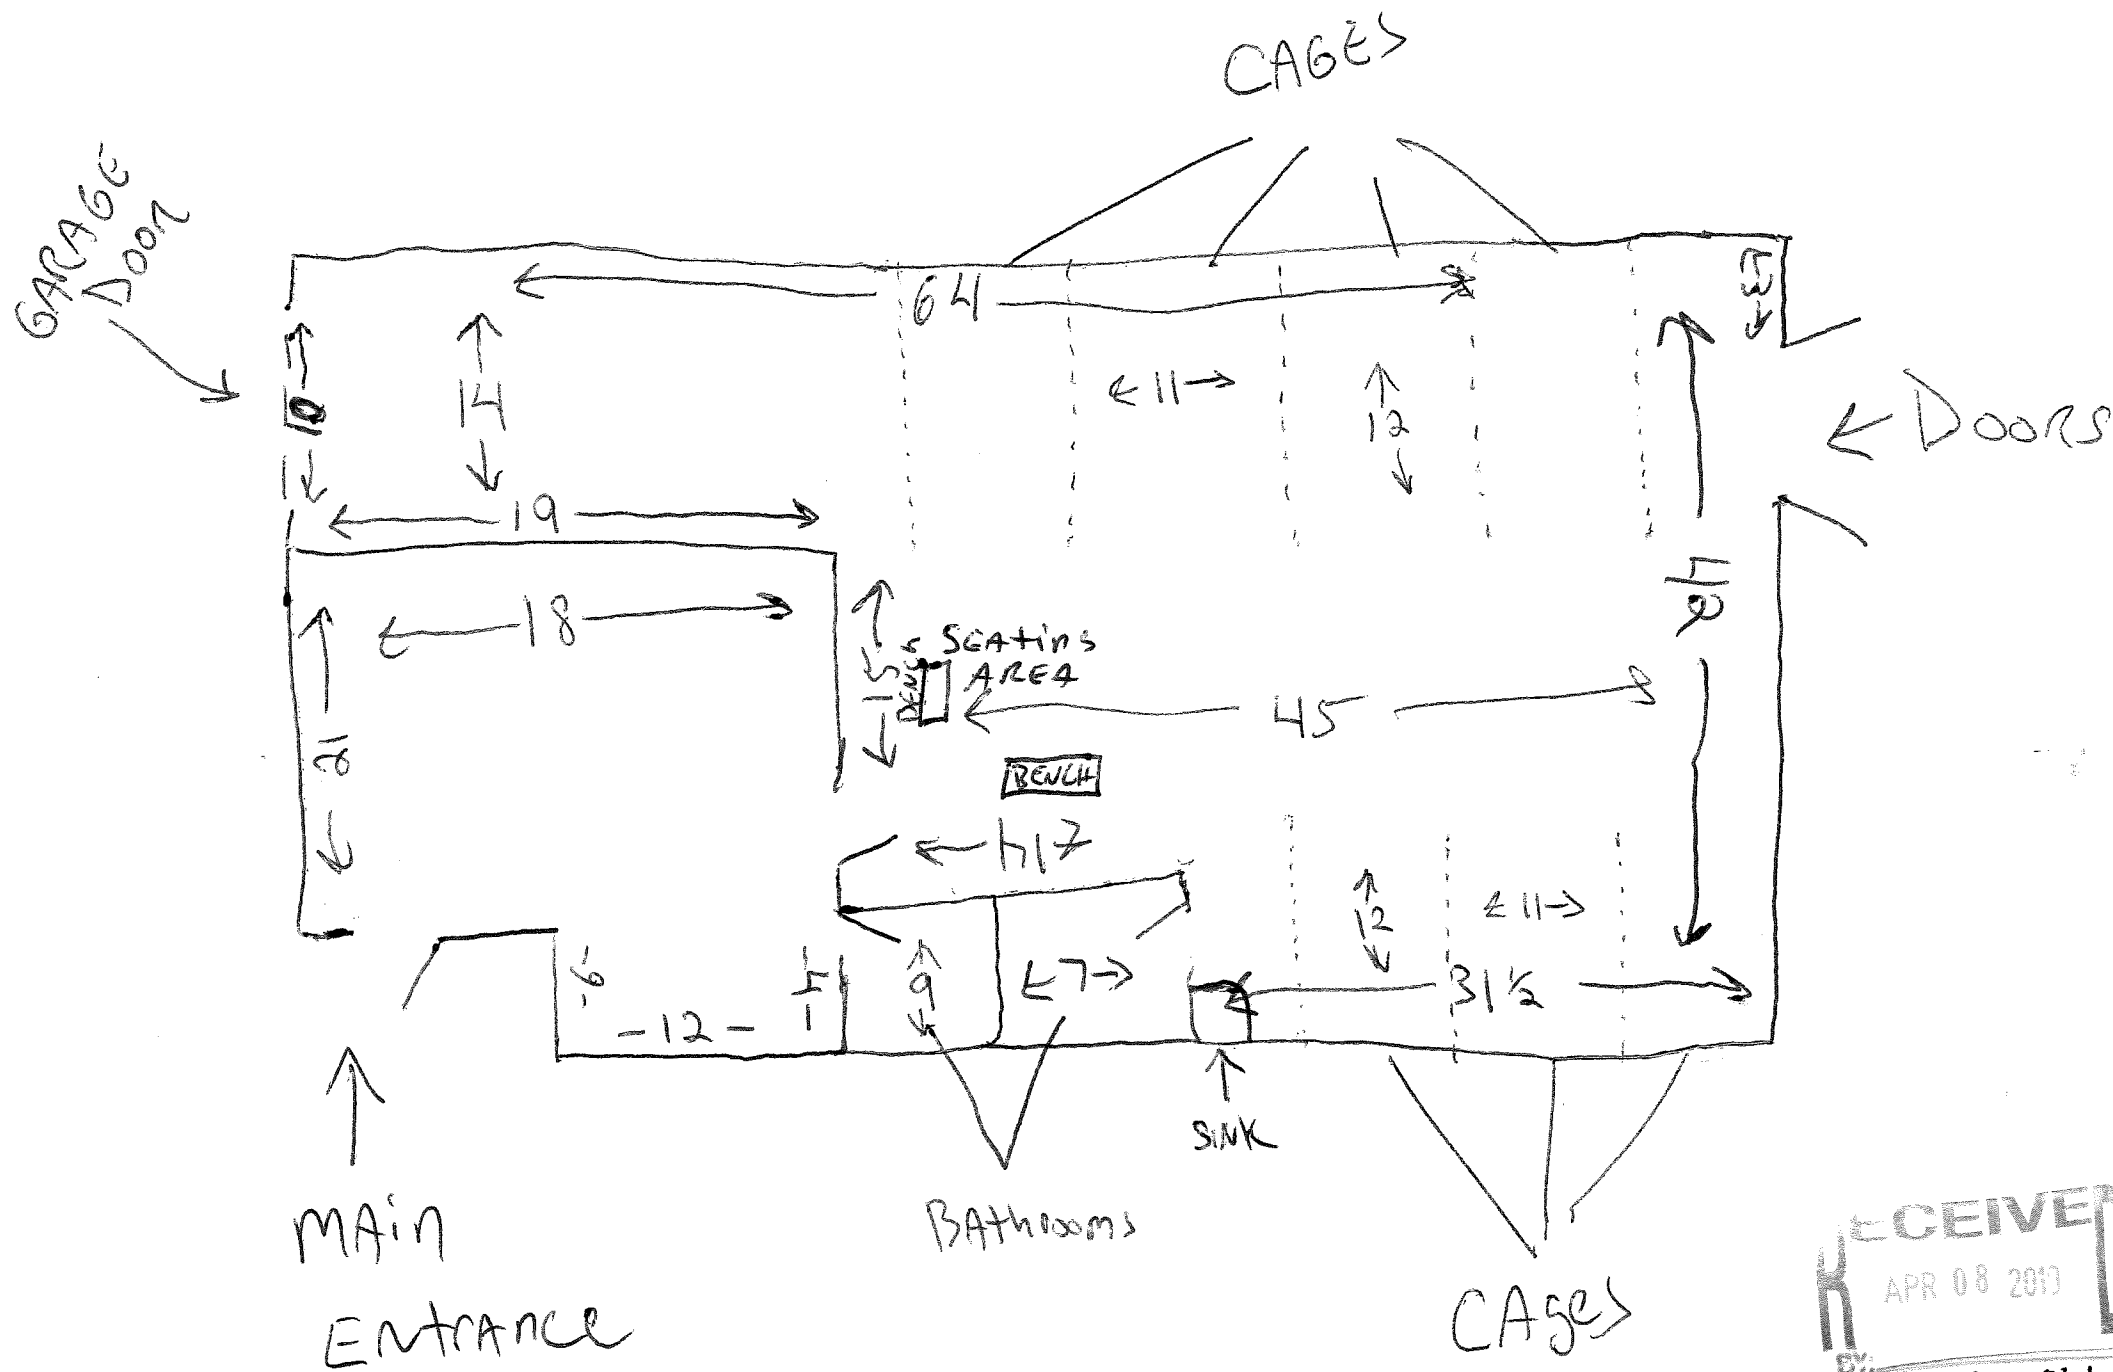 CAGES
GARAGE
DOOR
64
10
14
11
12
DOORS
19
18
SEATING
AREA
BENCH
15
45
21
BENCH
12
11
6
12
4
9
7
31 1/2
SINK
MAin
EntrAnce
BAthrooms
CAges
RECEIVE
APR 08 201
BY: